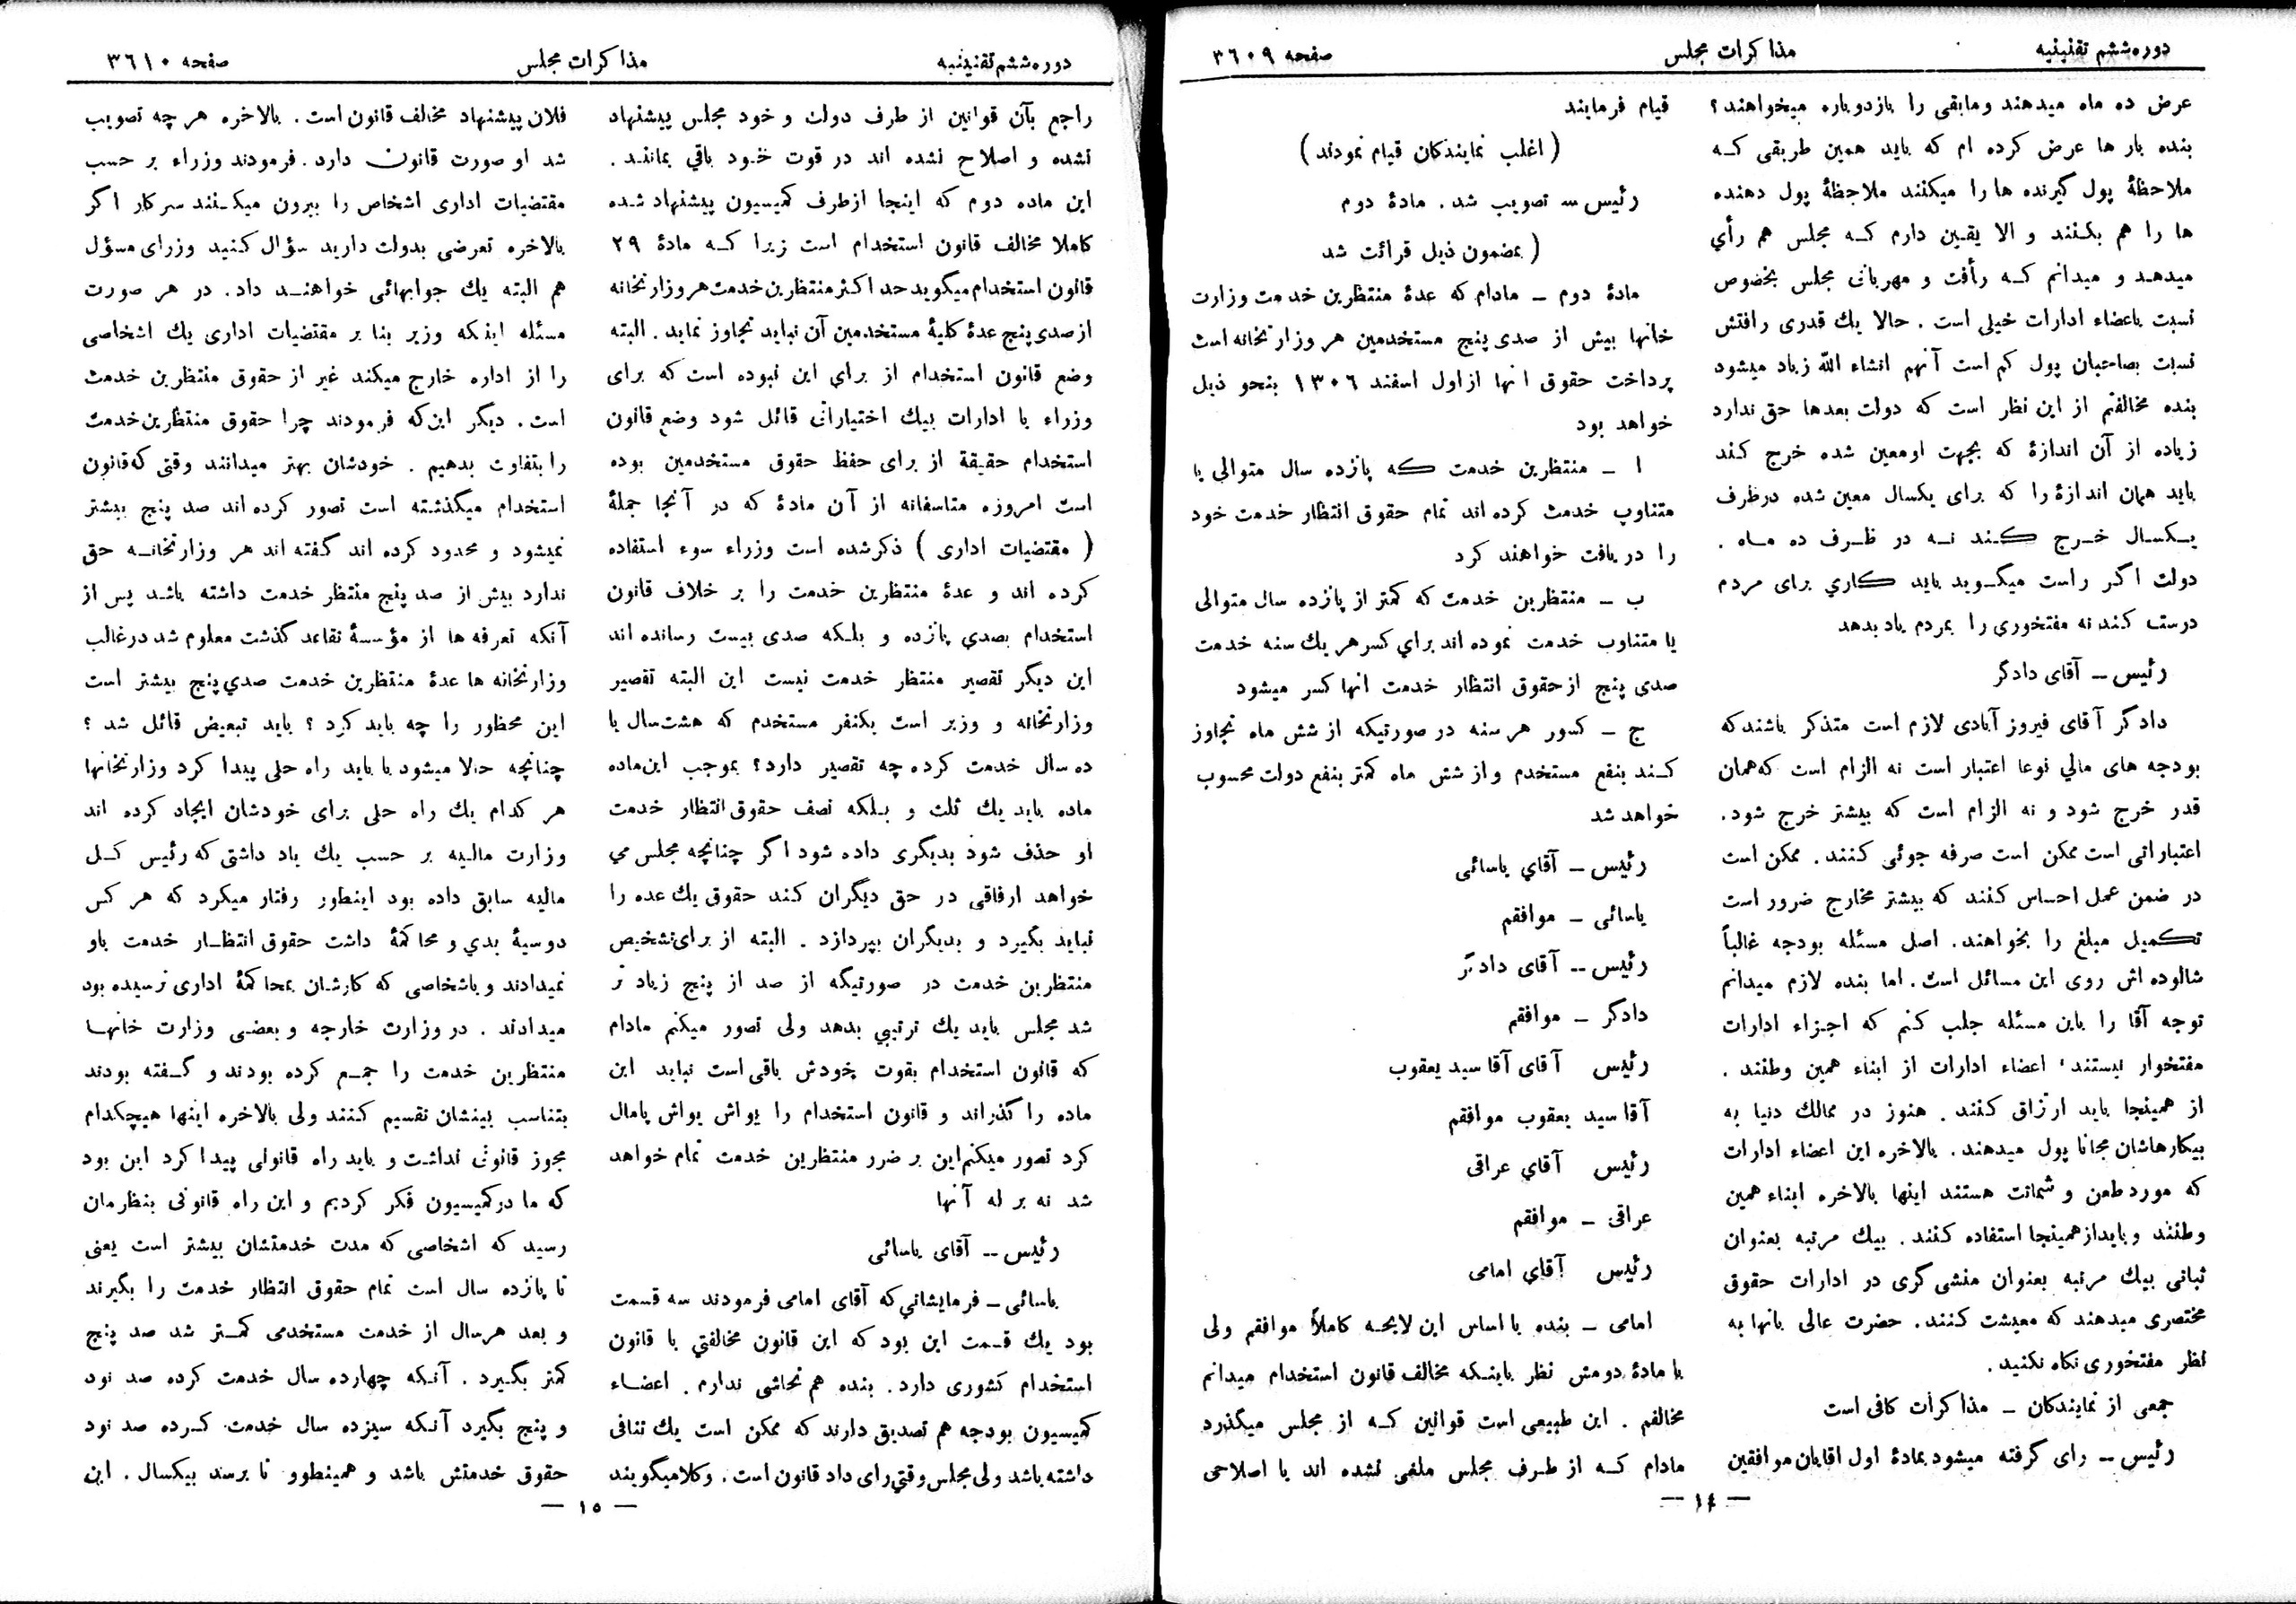 دوره ششم تقنینیه
مذاکرات مجلس
صفحه ۳٦۰۹
عرض ده ماه میدهند ومابقی را بازدوباره میخواهند؟
بنده بار ها عرض کرده ام که باید همین طریقی که
ملاحظهٔ پول گیرنده ها را میکنند ملاحظهٔ پول دهنده
ها را هم بکنند و الا یقین دارم که مجلس هم رأي
میدهد و میدانم که رأفت و مهربانی مجلس بخصوص
نسبت باعضاء ادارات خیلی است . حالا یك قدری رافتش
نسبت بصاحبان پول کم است آنهم انشاء الله زیاد میشود
بنده مخالفتم از این نظر است که دولت بعدها حق ندارد
زیاده از آن اندازهٔ که بجهت اومعین شده خرج کند
باید همان اندازهٔ را که برای یکسال معین شده درظرف
یکسال خرج کند نه در ظرف ده ماه .
دولت اگر راست میگوید باید کاري برای مردم
درست کند نه مفتخوری را بمردم یاد بدهد
رئیس – آقای دادگر
دادگر آقای فیروز آبادی لازم است متذکر باشند که
بودجه های مالي نوعا اعتبار است نه الزام است که همان
قدر خرج شود و نه الزام است که بیشتر خرج شود.
اعتباراتی است ممکن است صرفه جوئی کنند. ممکن است
در ضمن عمل احساس کنند که بیشتر مخارج ضرور است
تکمیل مبلغ را بخواهند. اصل مسئله بودجه غالباً
شالوده اش روی این مسائل است. اما بنده لازم میدانم
توجه آقا را باین مسئله جلب کنم که اجزاء ادارات
مفتخوار نیستند ، اعضاء ادارات از ابناء همین وطنند .
از همینجا باید ارتزاق کنند . هنوز در ممالك دنیا به
بیکارهاشان مجانا پول میدهند. بالاخره این اعضاء ادارات
که مورد طعن و شماتت هستند اینها بالاخره ابناء همین
وطنند و بایداز همینجا استفاده کنند. بیك مرتبه بعنوان
ثباتی بیك مرتبه بعنوان منشی گری در ادارات حقوق
مختصری میدهند که معیشت کنند. حضرت عالی بانها به
نظر مفتخوری نگاه نکنید .
جمعی از نمایندگان – مذاکرات کافی است
رئیس – رای گرفته میشود بمادهٔ اول اقایان موافقین
قیام فرمایند
( اغلب نمایندگان قیام نمودند )
رئیس – تصویب شد . مادهٔ دوم
( بمضمون ذیل قرائت شد
مادهٔ دوم – مادام که عدهٔ منتظرین خدمت وزارت
خانها بیش از صدی پنج مستخدمین هر وزارتخانه است
پرداخت حقوق انها ازاول اسفند ۱۳۰٦ بنحو ذیل
خواهد بود
ا – منتظرین خدمت که پانزده سال متوالی یا
متناوب خدمت کرده اند تمام حقوق انتظار خدمت خود
را دریافت خواهند کرد
ب – منتظرین خدمت که کمتر از پانزده سال متوالی
یا متناوب خدمت نموده اند براي کسر هر یك سنه خدمت
صدی پنج از حقوق انتظار خدمت انها کسر میشود
ج – کسور هر سنه در صورتیکه از شش ماه تجاوز
کند بنفع مستخدم و از شش ماه کمتر بنفع دولت محسوب
خواهد شد
رئیس – آقاي یاسائی
یاسائی – موافقم
رئیس – آقای دادگر
دادگر – موافقم
رئیس آقای آقا سید یعقوب
آقا سید یعقوب موافقم
رئیس آقاي عراقی
عراقی – موافقم
رئیس آقاي امامی
امامی – بنده با اساس این لایحه کاملاً موافقم ولی
با مادهٔ دومش نظر باینکه مخالف قانون استخدام میدانم
مخالفم . این طبیعی است قوانین که از مجلس میگذرد
مادام که از طرف مجلس ملغی نشده اند یا اصلاحی
— ۱٤ —
دوره ششم تقنینیه
مذاکرات مجلس
صفحه ۳٦۱۰
راجع بآن قوانین از طرف دولت و خود مجلس پیشنهاد
نشده و اصلاح نشده اند در قوت خود باقي بمانند .
این ماده دوم که اینجا ازطرف کمیسیون پیشنهاد شده
کاملا مخالف قانون استخدام است زیرا که مادهٔ ۲۹
قانون استخدام میگوید حد اکثر منتظرین خدمت هر وزارتخانه
از صدی پنج عدهٔ کلیهٔ مستخدمین آن نباید تجاوز نماید . البته
وضع قانون استخدام از براي این نبوده است که برای
وزراء یا ادارات بیك اختیاراتی قائل شود وضع قانون
استخدام حقیقة از برای حفظ حقوق مستخدمین بوده
است امروزه متاسفانه از آن مادهٔ که در آنجا جملهٔ
( مقتضیات اداری ) ذکر شده است وزراء سوء استفاده
کرده اند و عدهٔ منتظرین خدمت را بر خلاف قانون
استخدام بصدي پانزده و بلکه صدی بیست رسانده اند
این دیگر تقصیر منتظر خدمت نیست این البته تقصیر
وزارتخانه و وزیر است یکنفر مستخدم که هشت سال یا
ده سال خدمت کرده چه تقصیر دارد؟ بموجب این ماده
ماده باید یك ثلث و بلکه نصف حقوق انتظار خدمت
او حذف شود بدیگری داده شود اگر چنانچه مجلس مي
خواهد ارفاقی در حق دیگران کند حقوق یك عده را
نباید بگیرد و بدیگران بپردازد . البته از برای تشخیص
منتظرین خدمت در صورتیگه از صد از پنج زیاد تر
شد مجلس باید یك ترتیبي بدهد ولی تصور میکنم مادام
که قانون استخدام بقوت خودش باقی است نباید این
ماده را گذراند و قانون استخدام را یواش یواش پامال
کرد تصور میکنم این بر ضرر منتظرین خدمت تمام خواهد
شد نه بر له آنها
رئیس – آقای یاسائی
یاسائی – فرمایشاتي که آقای امامی فرمودند سه قسمت
بود یك قسمت این بود که این قانون مخالفتي با قانون
استخدام کشوری دارد . بنده هم تحاشی ندارم . اعضاء
کمیسیون بودجه هم تصدیق دارند که ممکن است یك تنافی
داشته باشد ولی مجلس وقتي رای داد قانون است. وکلا میگویند
فلان پیشنهاد مخالف قانون است . بالاخره هر چه تصویب
شد او صورت قانون دارد . فرمودند وزراء بر حسب
مقتضیات اداری اشخاص را بیرون میکنند سرکار اگر
بالاخره تعرضی بدولت دارید سؤال کنید وزرای مسؤل
هم البته یك جوابهائی خواهند داد. در هر صورت
مسئله اینکه وزیر بنا بر مقتضیات اداری یك اشخاصی
را از اداره خارج میکند غیر از حقوق منتظرین خدمت
است . دیگر این که فرمودند چرا حقوق منتظرین خدمت
را بتفاوت بدهیم . خودشان بهتر میدانند وقتی که قانون
استخدام میگذشته است تصور کرده اند صد پنج بیشتر
نمیشود و محدود کرده اند گفته اند هر وزارتخانه حق
ندارد بیش از صد پنج منتظر خدمت داشته باشد پس از
آنکه تعرفه ها از مؤسسهٔ تقاعد گذشت معلوم شد درغالب
وزارتخانه ها عدهٔ منتظرین خدمت صدي پنج بیشتر است
این محظور را چه باید کرد ؟ باید تبعیض قائل شد ؟
چنانچه حالا میشود یا باید راه حلی پیدا کرد وزارتخانها
هر کدام یك راه حلی برای خودشان ایجاد کرده اند
وزارت مالیه بر حسب یك یاد داشتی که رئیس کل
مالیه سابق داده بود اینطور رفتار میکرد که هر کس
دوسیهٔ بدي و محاکمهٔ داشت حقوق انتظار خدمت باو
نمیدادند و باشخاصی که کارشان بمحاکمهٔ اداری نرسیده بود
میدادند . در وزارت خارجه و بعضی وزارت خانها
منتظرین خدمت را جمع کرده بودند و گفته بودند
بتناسب بینشان تقسیم کنند ولی بالاخره اینها هیچکدام
مجوز قانونی نداشت و باید راه قانونی پیدا کرد این بود
که ما در کمیسیون فکر کردیم و این راه قانونی بنظرمان
رسید که اشخاصی که مدت خدمتشان بیشتر است یعنی
تا پانزده سال است تمام حقوق انتظار خدمت را بگیرند
و بعد هرسال از خدمت مستخدمی کمتر شد صد پنج
کمتر بگیرد . آنکه چهارده سال خدمت کرده صد نود
و پنج بگیرد آنکه سیزده سال خدمت کرده صد نود
حقوق خدمتش باشد و همینطوو تا برسد بیکسال . این
— ۱٥ —